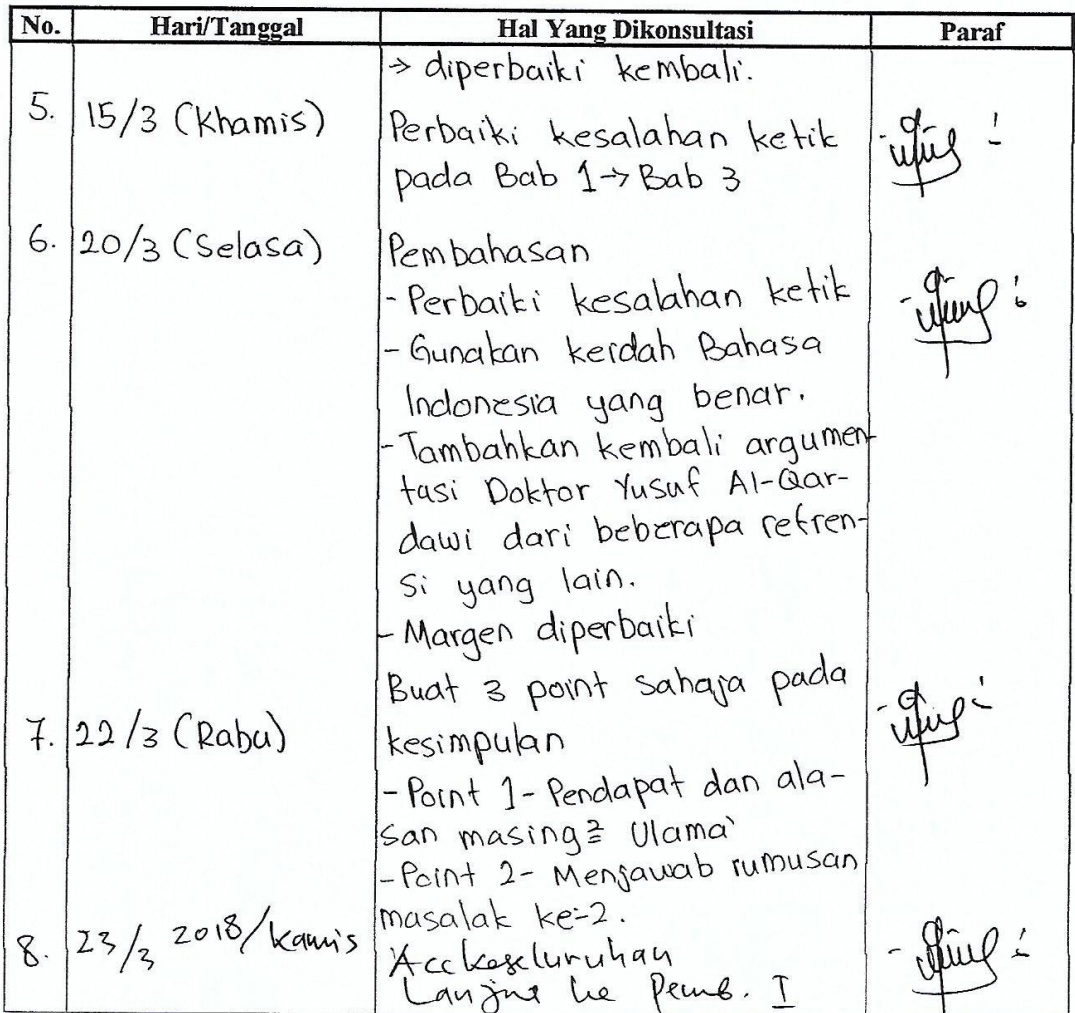 No. Hari/Tanggal Hal Yang Dikonsultasi Paraf
→ diperbaiki kembali.
5. 15/3 (Khamis) Perbaiki kesalahan ketik
pada Bab 1→ Bab 3
6. 20/3 (Selasa) Pembahasan
- Perbaiki kesalahan ketik
- Gunakan keidah Bahasa
Indonesia yang benar.
- Tambahkan kembali argumen-
tasi Doktor Yusuf Al-Qar-
dawi dari beberapa refren-
si yang lain.
- Margen diperbaiki
Buat 3 point sahaja pada
7. 22/3 (Rabu) kesimpulan
- Point 1- Pendapat dan ala-
san masing² Ulama'
- Point 2- Menjawab rumusan
masalak ke-2.
8. 23/3 2018/kamis Acc keseluruhan
Lanjut ke Pemb. I